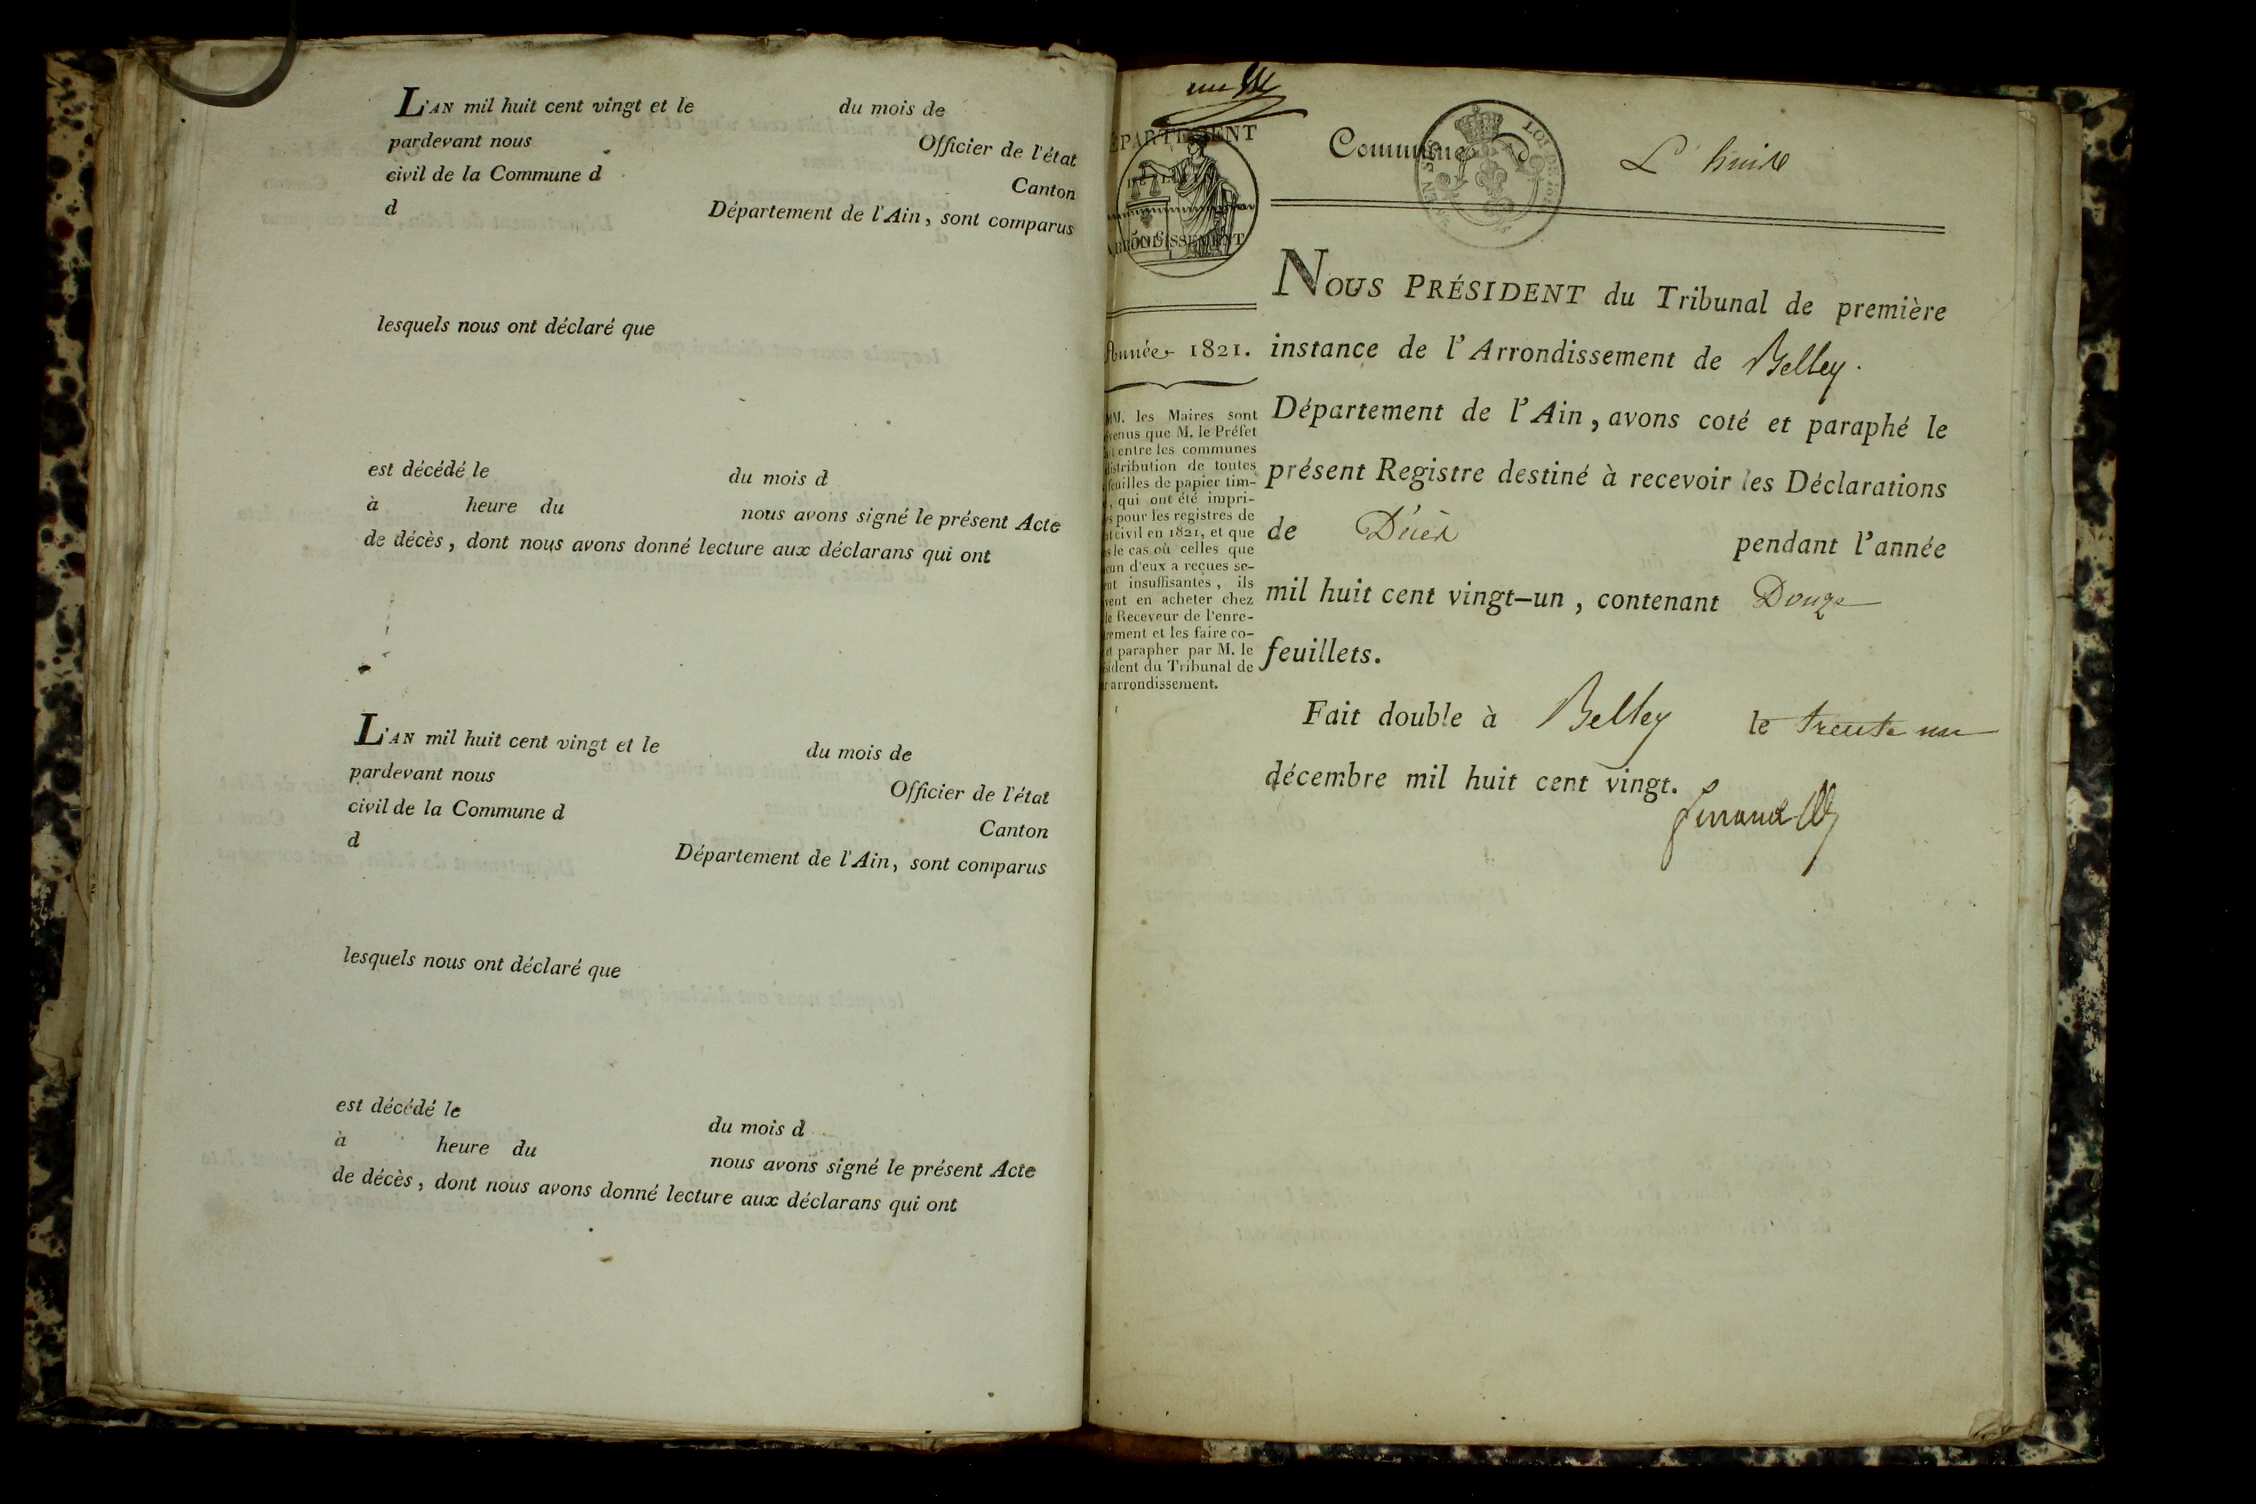 L'AN mil huit cent vingt et le du mois de
pardevant nous Officier de l'état
civil de la Commune d Canton
d Département de l'Ain, sont comparus
lesquels nous ont déclaré que
est décédé le du mois d
à heure du nous avons signé le présent Acte
de décès, dont nous avons donné lecture aux déclarans qui ont
L'AN mil huit cent vingt et le du mois de
pardevant nous Officier de l'état
civil de la Commune d Canton
d Département de l'Ain, sont comparus
lesquels nous ont déclaré que
est décédé le du mois d
à heure du nous avons signé le présent Acte
de décès, dont nous avons donné lecture aux déclarans qui ont
un
ÉPARTEMENT
ARRONDISSEMENT
Année 1821.
MM. les Maires sont
venus que M. le Préfet
entre les communes
distribution de toutes
feuilles de papier tim-
, qui ont été impri-
s pour les registres de
civil en 1821, et que
s le cas où celles que
cun d'eux a reçues se-
nt insuffisantes, ils
vent en acheter chez
le Receveur de l'enre-
rement et les faire co-
et parapher par M. le
sident du Tribunal de
r arrondissement.
Commune L'huis
NOUS PRÉSIDENT du Tribunal de première
instance de l'Arrondissement de Belley.
Département de l'Ain, avons coté et paraphé le
présent Registre destiné à recevoir les Déclarations
de Décès pendant l'année
mil huit cent vingt-un, contenant Douze
feuillets.
Fait double à Belley le trente un
décembre mil huit cent vingt.